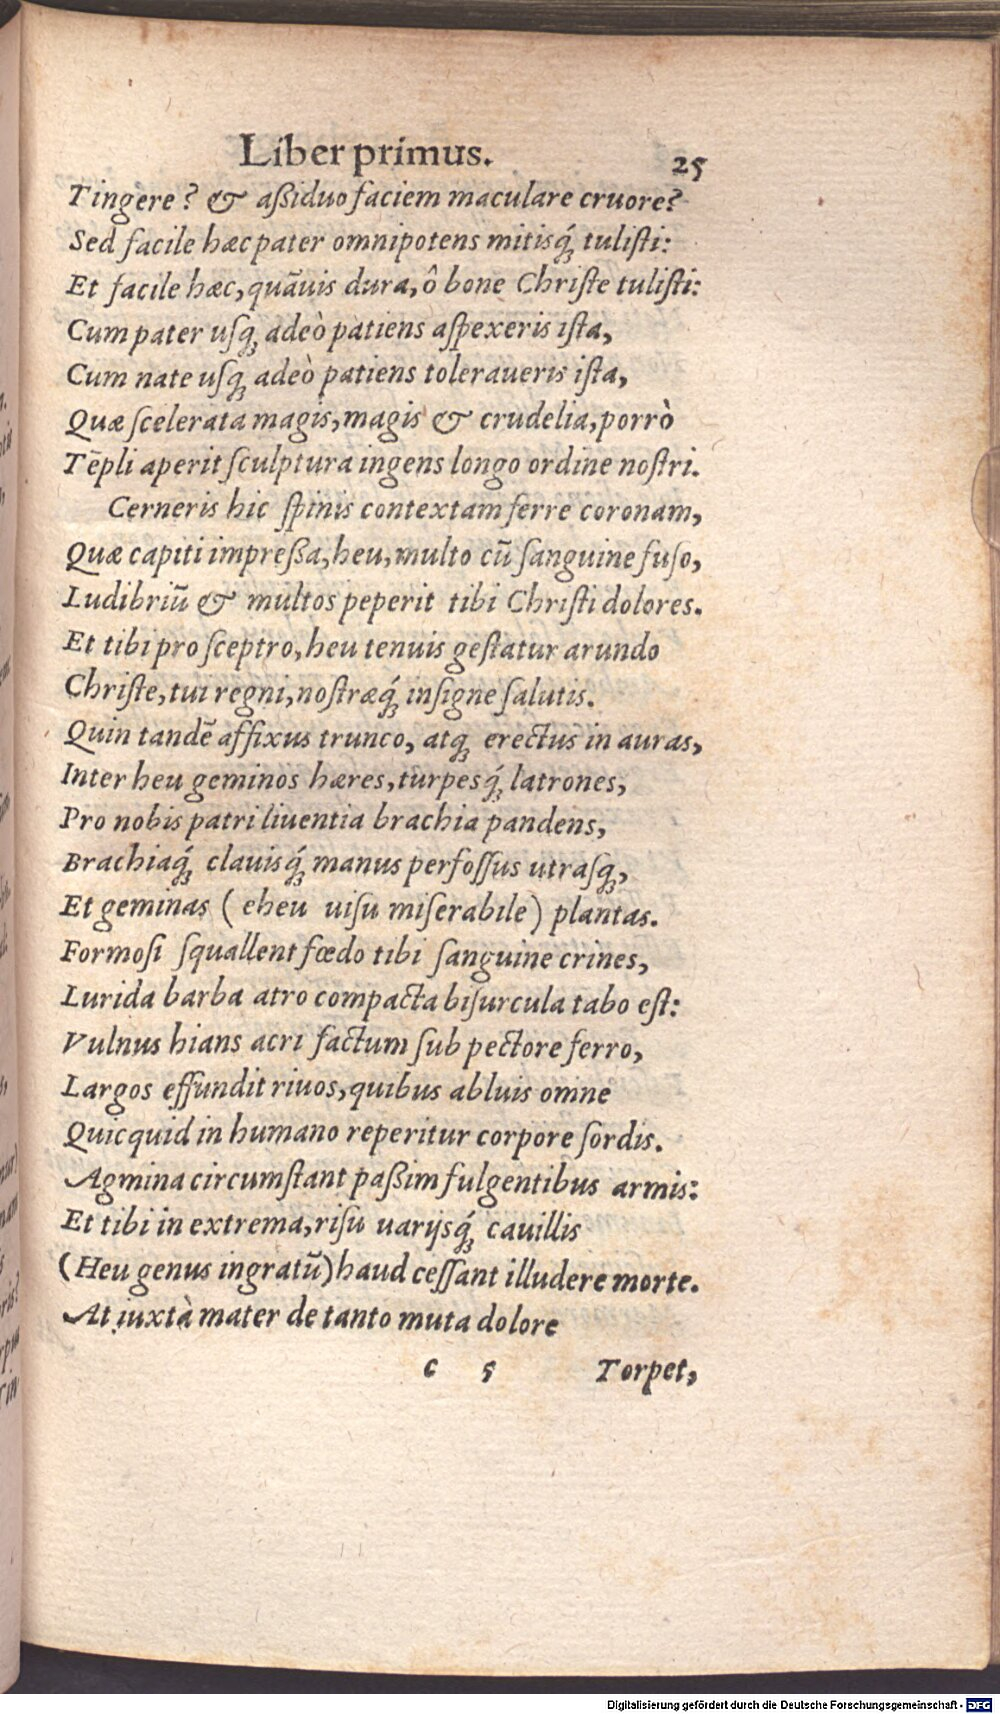 Liber primus. 25
Tingere? & aßiduo faciem maculare cruore?
Sed facile hæc pater omnipotens mitisq́; tulisti:
Et facile hæc, quãuis dura, ô bone Christe tulisti:
Cum pater usq; adeò patiens aspexeris ista,
Cum nate usq; adeò patiens toleraueris ista,
Quæ scelerata magis, magis & crudelia, porrò
Tẽpli aperit sculptura ingens longo ordine nostri.
Cerneris hic spinis contextam ferre coronam,
Quæ capiti impreßa, heu, multo cũ sanguine fuso,
Ludibriũ & multos peperit tibi Christi dolores.
Et tibi pro sceptro, heu tenuis gestatur arundo
Christe, tui regni, nostræq́; insigne salutis.
Quin tandẽ affixus trunco, atq; erectus in auras,
Inter heu geminos hæres, turpesq́; latrones,
Pro nobis patri liuentia brachia pandens,
Brachiaq́; clauisq́; manus perfossus utrasq;,
Et geminas ( eheu uisu miserabile) plantas.
Formosi squallent fœdo tibi sanguine crines,
Lurida barba atro compacta bifurcula tabo est:
Vulnus hians acri factum sub pectore ferro,
Largos effundit riuos, quibus abluis omne
Quicquid in humano reperitur corpore sordis.
Agmina circumstant paßim fulgentibus armis:
Et tibi in extrema, risu uarijsq́; cauillis
(Heu genus ingratũ) haud cessant illudere morte.
At iuxtà mater de tanto muta dolore
c 5 Torpet,
Digitalisierung gefördert durch die Deutsche Forschungsgemeinschaft - DFG